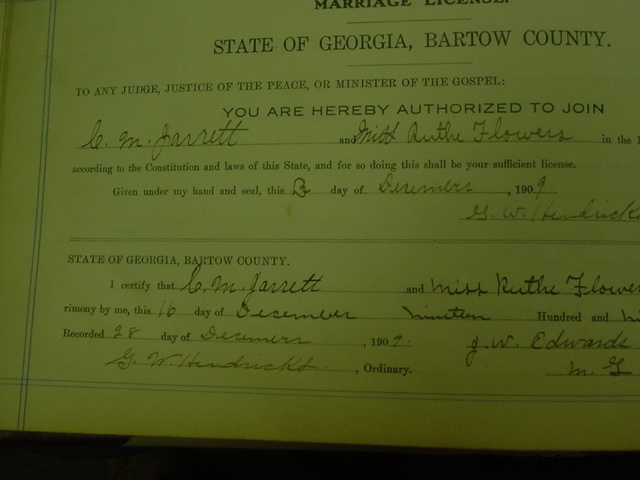 MARRIAGE LICENSE.
STATE OF GEORGIA, BARTOW COUNTY.
TO ANY JUDGE, JUSTICE OF THE PEACE, OR MINISTER OF THE GOSPEL:
YOU ARE HEREBY AUTHORIZED TO JOIN
C. M. Jarrett and Miss Ruthe Flowers in the
according to the Constitution and laws of this State, and for so doing this shall be your sufficient license.
Given under my hand and seal, this day of Desember, 1909.
G. W. Hendricks
STATE OF GEORGIA, BARTOW COUNTY.
I certify that C. M. Jarrett and Miss Ruthe Flowers
rimony by me, this 16 day of December nineteen Hundred and
Recorded 28 day of Desember, 1909. J. W. Edwards
G. W. Hendricks, Ordinary. M. G